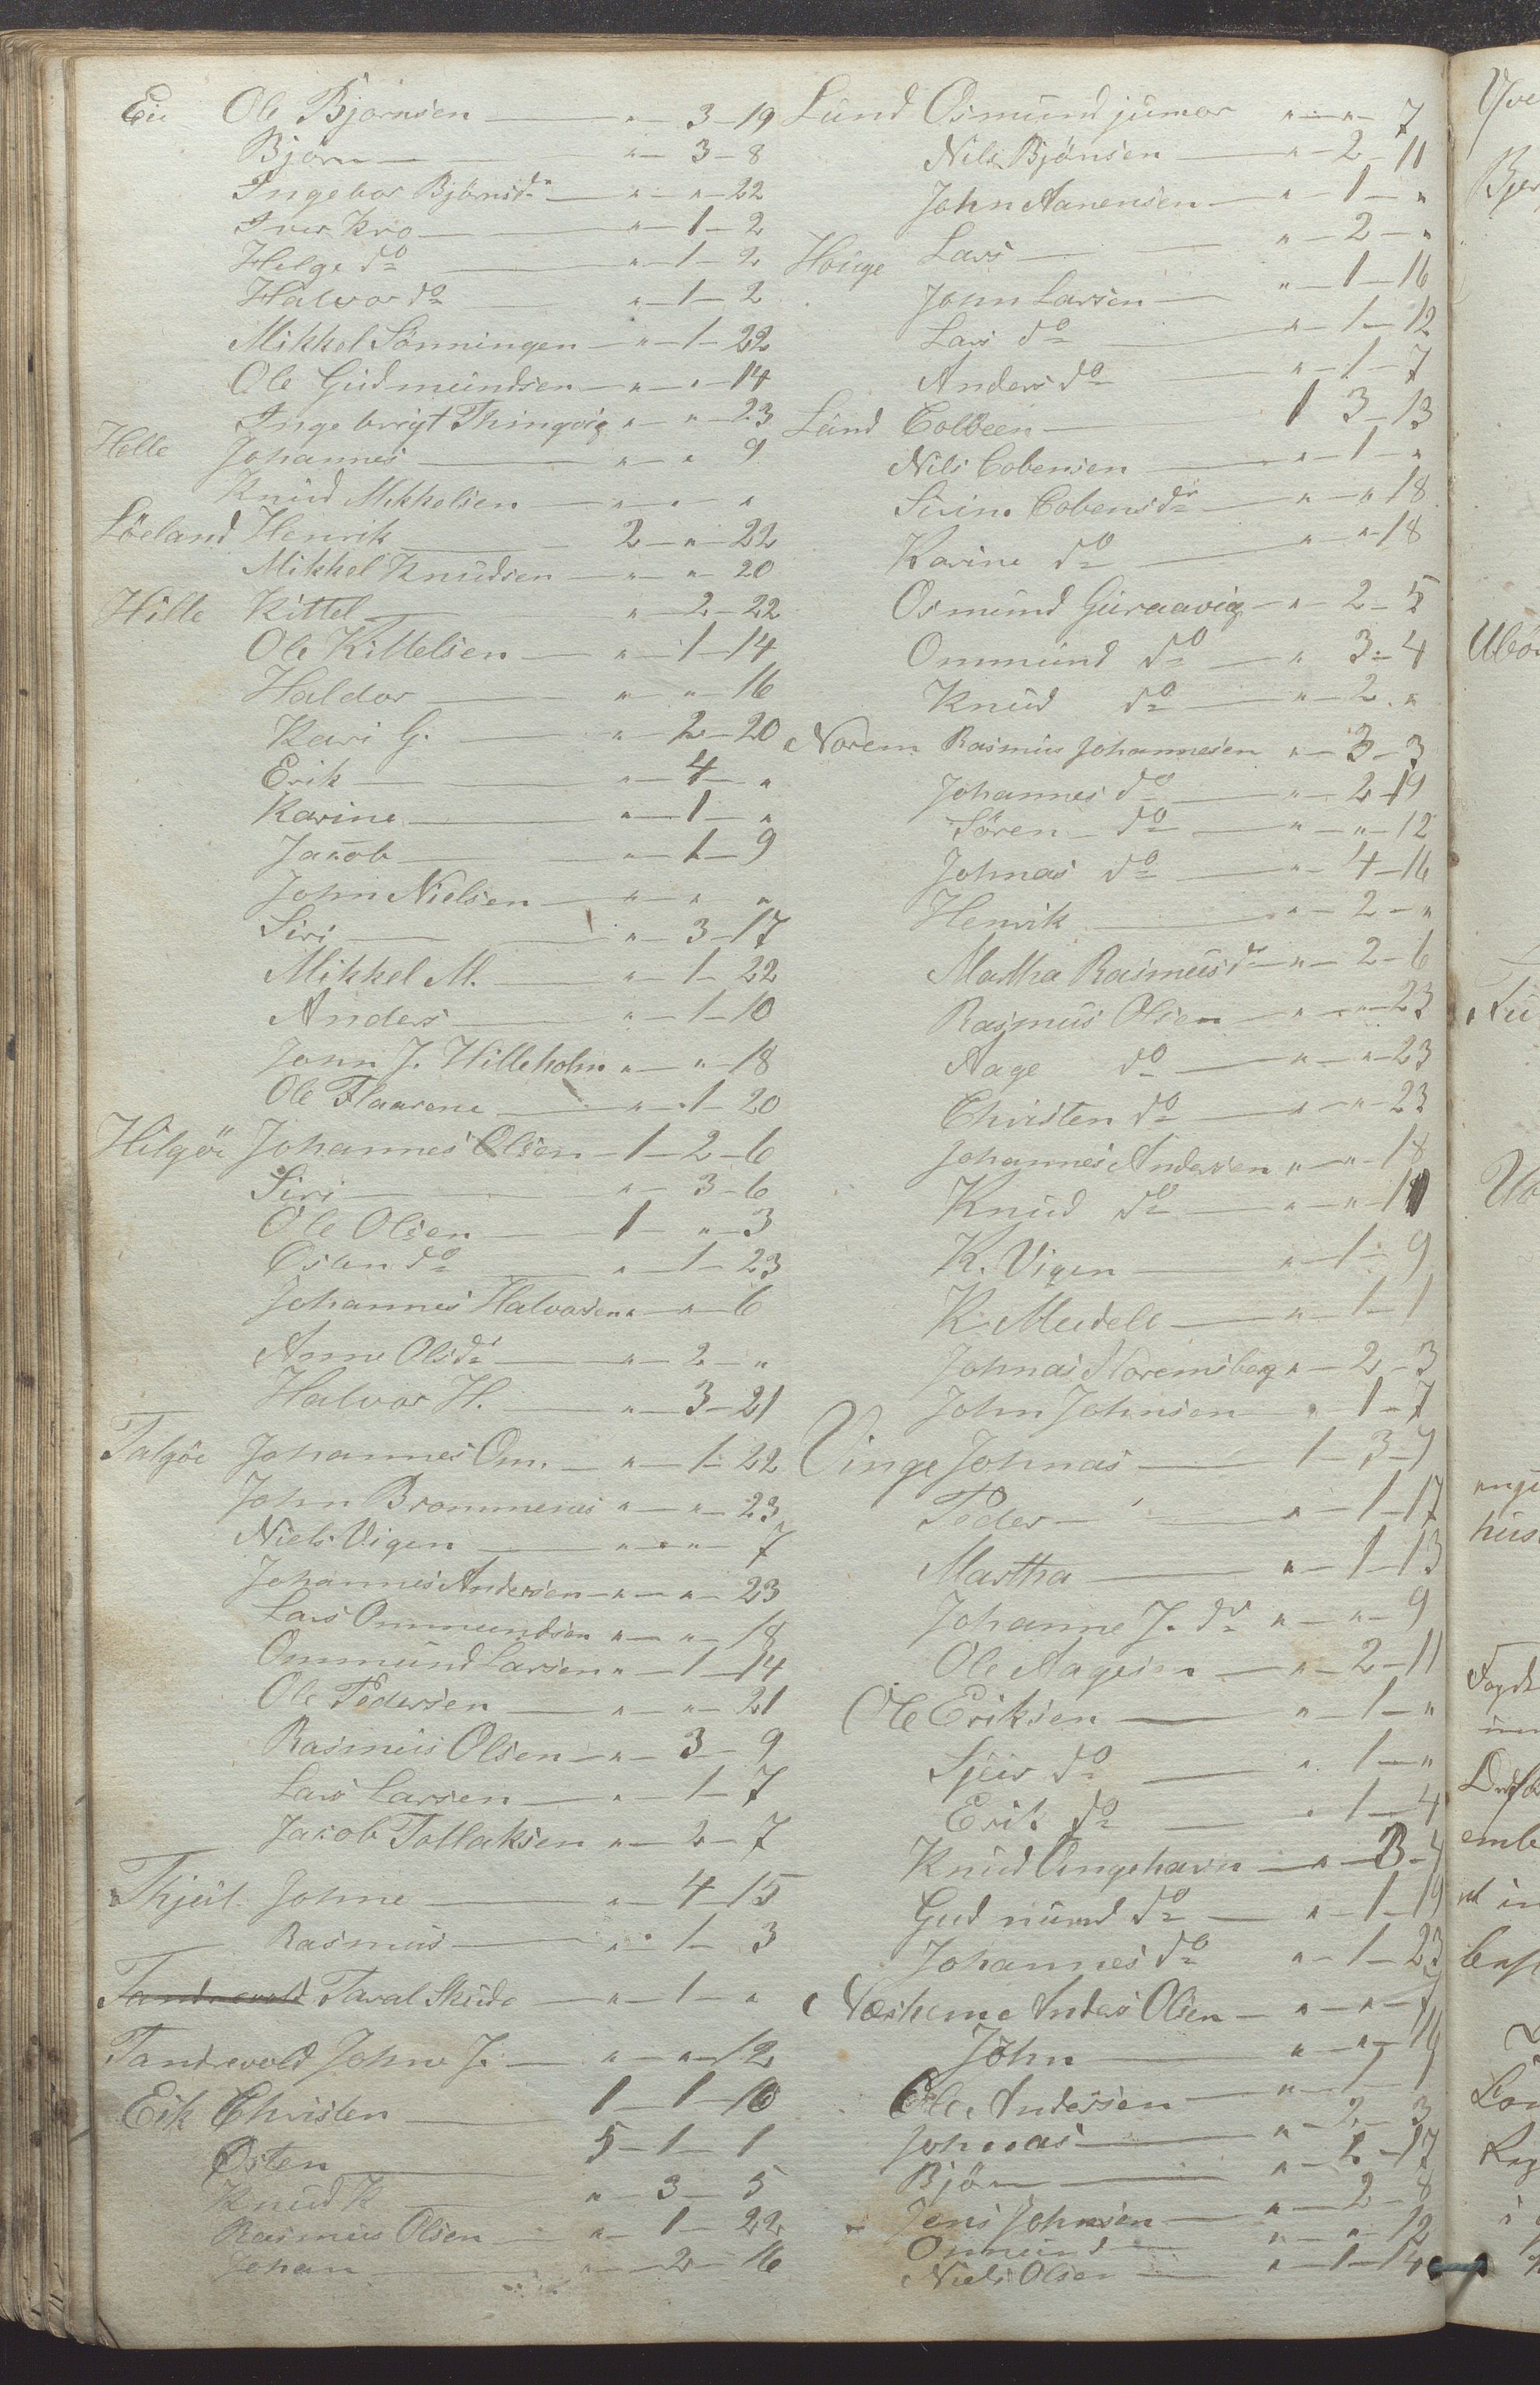 Eie Ole Bjørnsen — " — 3 — 19
Bjørn — " — 3 — 8
Ingebor Bjørnsd. — " — " — 22
Iver Kro — " — 1 — 2
Helge do — " — 1 — 2
Halvor do — " — 1 — 2
Mikkel Sönningen — " — 1 — 22
Ole Gudmundsen — " — " — 14
Ingebrigt Thingvig " — " — 23
Helle Johannes — " — " 9
Knud Mikkelsen — " — " — "
Löeland Henrik — 2 — " — 22
Mikkel Knudsen — " — " — 20
Hille Kittel — " — 2 — 22
Ole Kittelsen — " — 1 — 14
Haldor — " — " — 16
Kari G. — " — 2 — 20
Erik — " — 4 — "
Karine — " — 1 — "
Jakob — " — 1 — 9
John Nielsen — " — " "
Siri — " — 3 — 17
Mikkel M. — " — 1 — 22
Anders — " — 1 — 10
John J. Hilleholm " — " — 18
Ole Flaarene — " — 1 — 20
Hilgöe Johannes Olsen — 1 — 2 — 6
Siri — " — 3 — 6
Ole Olsen — 1 — " — 3
Osten do — " — 1 — 23
Johannes Halvorsen " — " — 6
Anne Olsd. — " — 2 — "
Halvor H. — " — 3 — 21
Talgöe Johannes Om. — " — 1 — 22
John Brommenes " — " — 23
Niels Vigen — " — " — 7
Johannes Andersen — " — " — 23
Lars Ommundsen " — " — 18
Ommund Larsen " — 1 — 14
Ole Pedersen — " — " — 21
Rasmus Olsen — " — 3 — 9
Lars Larsen — " — 1 — 7
Jakob Tollaksen " — 2 — 7
Thjul. Johne — " — 4 — 15
Rasmus — " — 1 — 3
Tandrevold Skude — " — 1 — "
Tandrevold John J. — " — " — 12
Eik Christen — 1 — 1 — 16
Osten — 5 — 1 — 1
Knud K — " — 3 — 5
Rasmus Olsen — " — 1 — 22
Johan — " — 2 — 16
Lund Osmund junior " — " — 7
Nils Bjönsen — " — 2 — 11
John Aanensen — " — 1 — "
Houge Lars — " — 2 — "
John Larsen — " — 1 — 16
Lars do — " — 1 — 12
Anders do — " — 1 — 7
Lund Colbeen — 1 3 — 13
Nils Cobensen — " — 1 — "
Sirin. Cobensd. — " — " 18
Karine do — " — " — 18
Osmund Guraavig — " — 2 — 5
Ommund do — " 3 — 4
Knud do — " — 2 "
Norem Rasmus Johannesen " — 3 — 3
Johannes do — " — 2 — 19
Sören — do — " — " — 12
Johnas do — " — 4 — 16
Henrik — " — 2 — "
Martha Rasmusd. — " — 2 — 6
Rasmus Olsen — " — " — 23
Aage do — " — " — 23
Christen do — " — " — 23
Johannes Andersen " — " — 18
Knud do — " — "
K. Vigen — " — 1 — 9
K. Meidell — " — 1 — 1
Johnas Noremsberg " — 2 — 3
John Johnsen — " — 1 — 7
Vinge Johnas — 1 — 3 —
Peder — " — 1 — 17
Martha — " — 1 — 13
Johanne J. dr " — " — 9
Ole Aageim — " — 2 — 11
Ole Eriksen — " — 1 — "
Sjur do — " 1 — "
Erik do — " 1 — 4
Knud Ongehavn — " — 3 — 4
Gudmund do — " — 1 — 19
Johannes do " — 1 — 23
Næsheme Anders Olsen — " — " — 7
John — " — "
Ole Andersen — " — 1 —
Johnas — " — 2 — 3
Björn — " — 1 — 17
Jens Johnsen — " — 2 — 8
Ommund — " — " — 12
Niels Olsen — " — 1 — 14